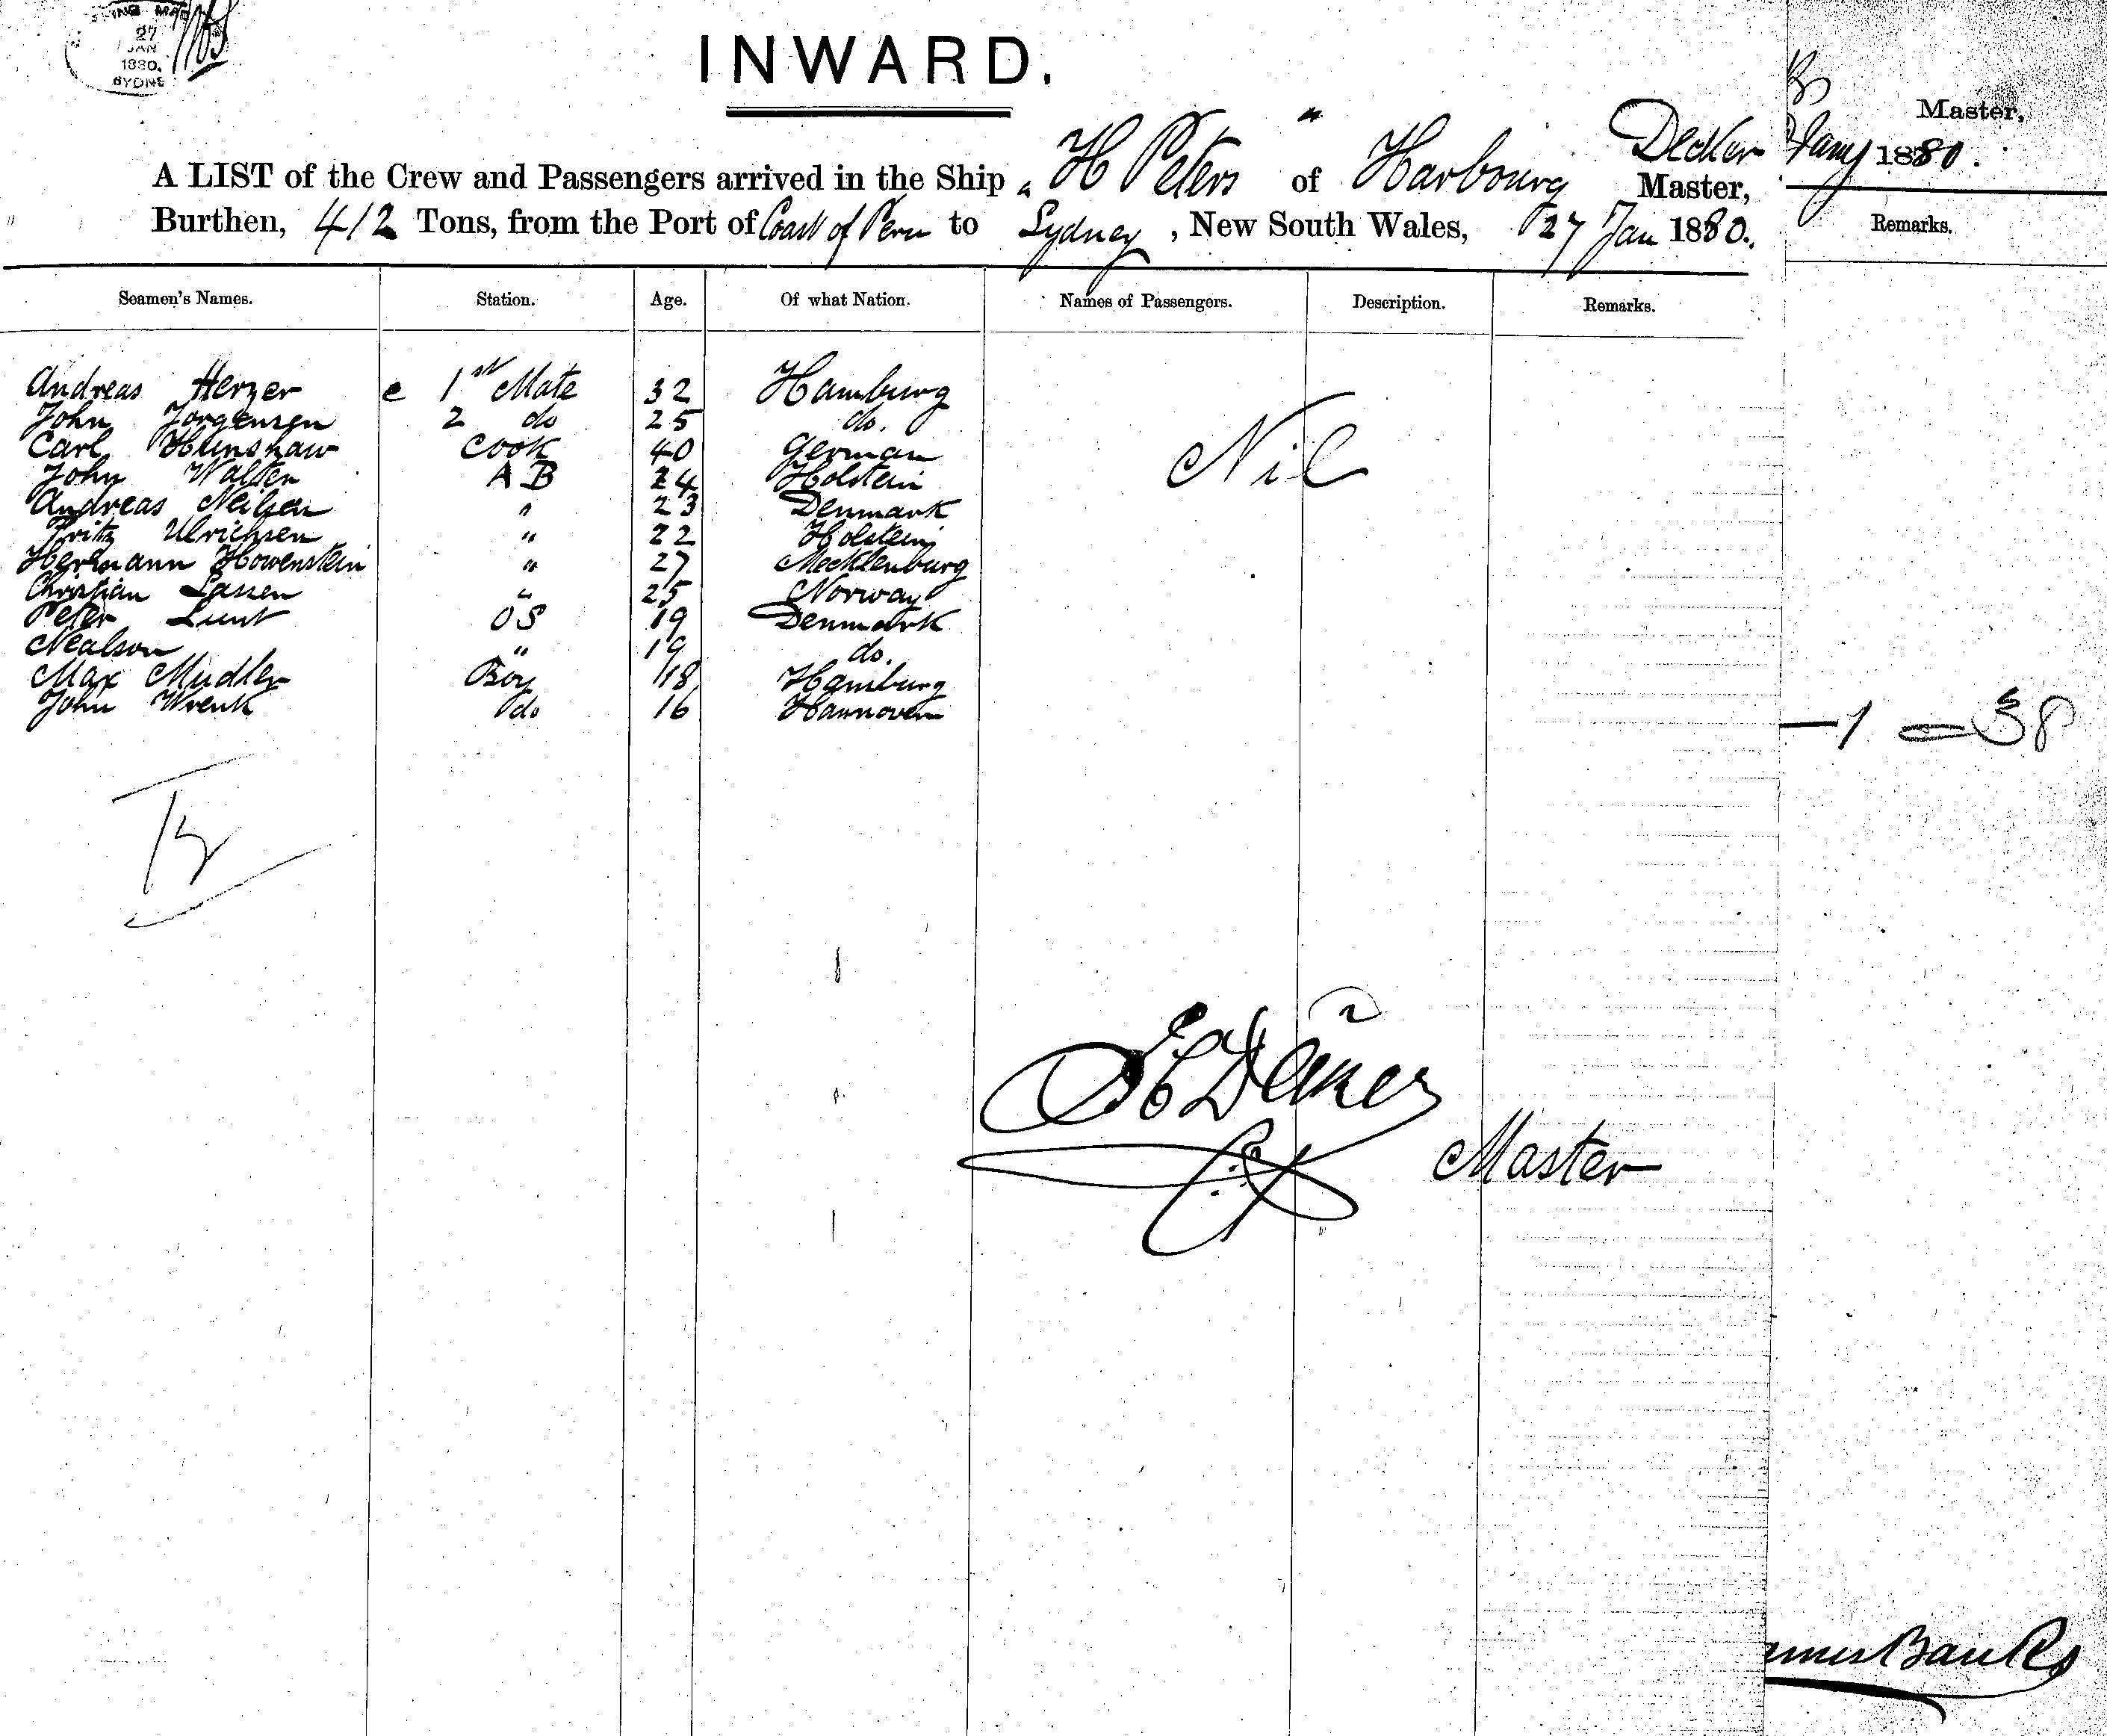 27
JAN
1880.
SYDNE
INWARD.
A LIST of the Crew and Passengers arrived in the Ship "H Peters" of Harbourg Decker Master,
Burthen, 412 Tons, from the Port of Coast of Peru to Sydney, New South Wales, 27 Jan 1880.
Seamen's Names. Station. Age. Of what Nation. Names of Passengers. Description. Remarks.
Andreas Herzer 1st Mate 32 Hamburg
John Jorgensen 2 do 25 do.
Carl Hunshaw Cook 40 German
John Walsen A B 24 Holstein
Andreas Neilsen " 23 Denmark
Fritz Ulrichsen " 22 Holstein
Hermann Howenstein " 27 Mecklenburg
Christian Lassen " 25 Norway
Peter Lunt OS 19 Denmark
Nealson " 19 do.
Max Mudler Boy 18 Hamburg
John Wrenk do 16 Hannover
Nil
Master
Master,
Jany 1880.
Remarks.
Banks